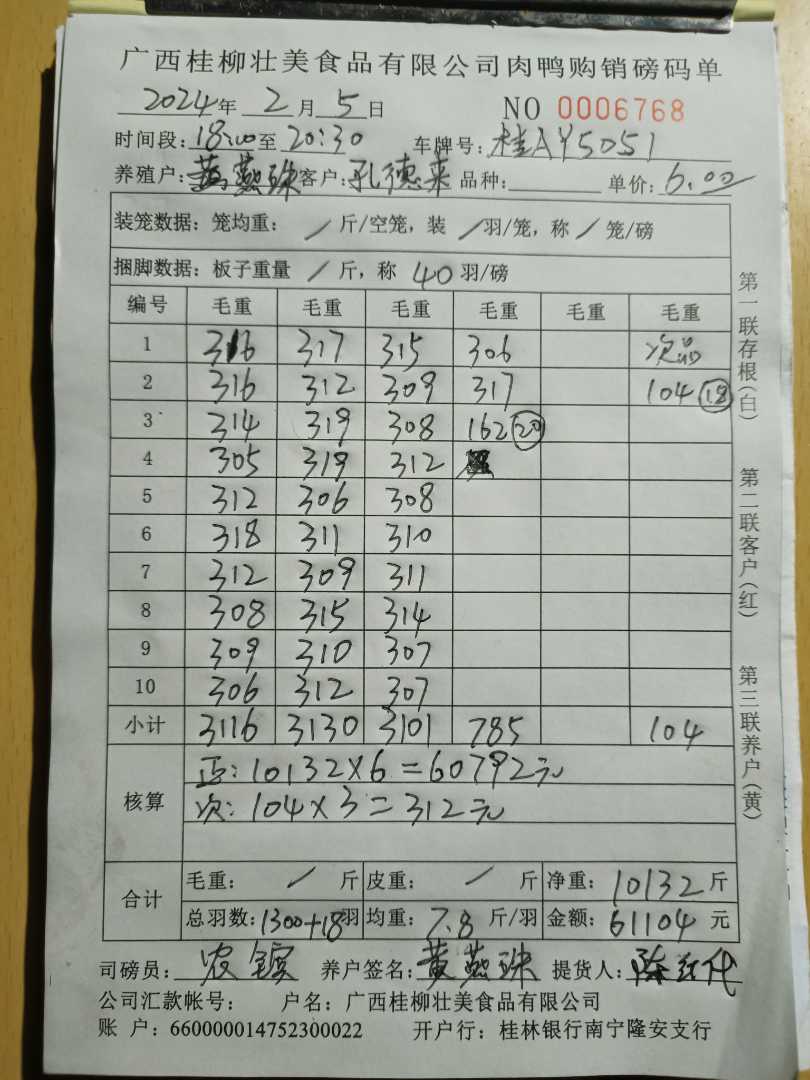 广西桂柳壮美食品有限公司肉鸭购销磅码单
2024年 2月 5日 NO 0006768
时间段:18:00至20:30 车牌号:桂AY5051
养殖户:黄燕珠 客户:孔德来 品种: 单价:6.00
装笼数据:笼均重: / 斤/空笼,装 / 羽/笼,称 / 笼/磅
捆脚数据:板子重量 / 斤,称 40 羽/磅
编号 毛重 毛重 毛重 毛重 毛重 毛重
1 316 317 315 306 次品
2 316 312 309 317 104 18
3 314 319 308 162 20
4 305 319 312
5 312 306 308
6 318 311 310
7 312 309 311
8 308 315 314
9 309 310 307
10 306 312 307
小计 3116 3130 3101 785 104
核算
正:10132×6=60792元
次:104×3=312元
合计
毛重: / 斤 皮重: / 斤 净重:10132斤
总羽数:1300+18羽 均重:7.8斤/羽 金额:61104元
司磅员:农 养户签名:黄燕珠 提货人:陈
公司汇款帐号: 户名:广西桂柳壮美食品有限公司
账 户:660000014752300022 开户行:桂林银行南宁隆安支行
第一联存根(白)
第二联客户(红)
第三联养户(黄)